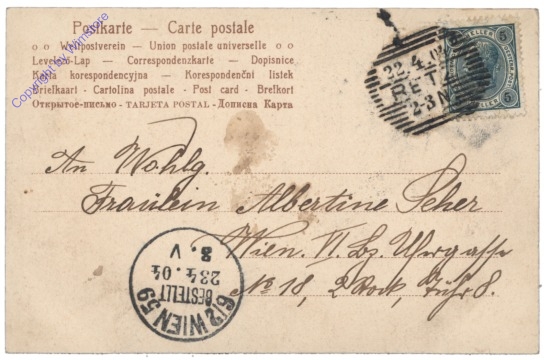 Postkarte — Carte postale
Weltpostverein - Union postale universelle
Levelező-Lap — Correspondenzkarte — Dopisnice
Karta korespondencyjna — Korespondenční listek
Briefkaart - Cartolina postale - Post card - Brefkort
Открытое письмо - TARJETA POSTAL - Дописна Карта
Copyright by Winistore
22.4.
RETZ
2-3 N
5 5
An Wohlg.
Fräulein Albertine Seher
Wien. VI. Bz.
No 18, 2. Stock, Thür 8.
6/2 WIEN 59
BESTELLT
23 4. 04
8. V